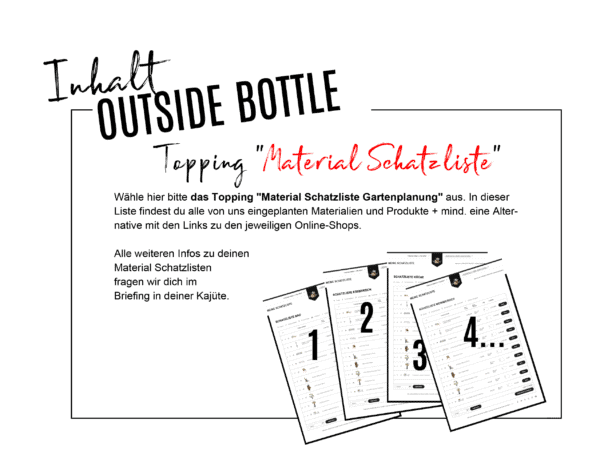 Inhalt
OUTSIDE BOTTLE
Topping "Material Schatzliste"
Wähle hier bitte das Topping "Material Schatzliste Gartenplanung" aus. In dieser
Liste findest du alle von uns eingeplanten Materialien und Produkte + mind. eine Alter-
native mit den Links zu den jeweiligen Online-Shops.
Alle weiteren Infos zu deinen
Material Schatzlisten
fragen wir dich im
Briefing in deiner Kajüte.
1
2
3
4...